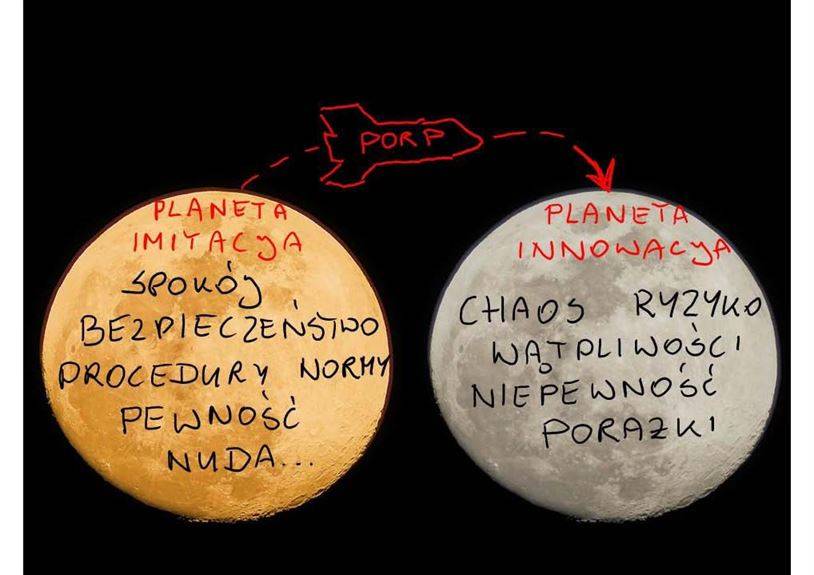 PORP
PLANETA
IMITACJA
SPOKÓJ
BEZPIECZEŃSTWO
PROCEDURY NORMY
PEWNOŚĆ
NUDA...
PLANETA
INNOWACJA
CHAOS RYZYKO
WĄTPLIWOŚCI
NIEPEWNOŚĆ
PORAŻKI